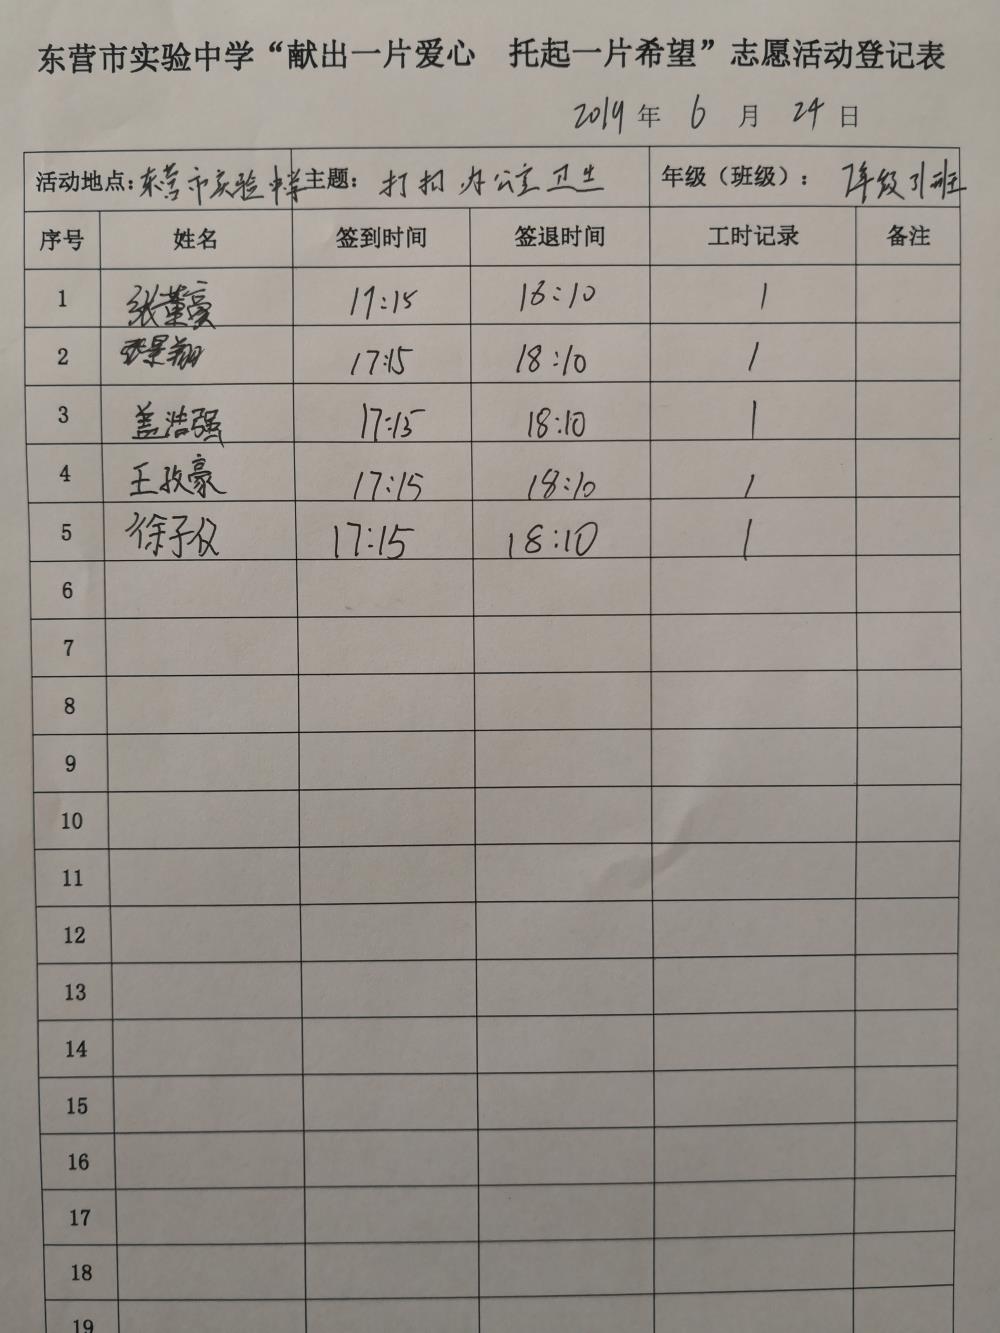 东营市实验中学“献出一片爱心 托起一片希望”志愿活动登记表
2019 年 6 月 24 日
活动地点：东营市实验中学 主题： 打扫办公室卫生 年级（班级）： 级31班
序号 姓名 签到时间 签退时间 工时记录 备注
1 张董豪 17:15 18:10 1
2 景翔 17:15 18:10 1
3 盖浩强 17:15 18:10 1
4 王孜豪 17:15 18:10 1
5 徐子仪 17:15 18:10 1
6
7
8
9
10
11
12
13
14
15
16
17
18
19